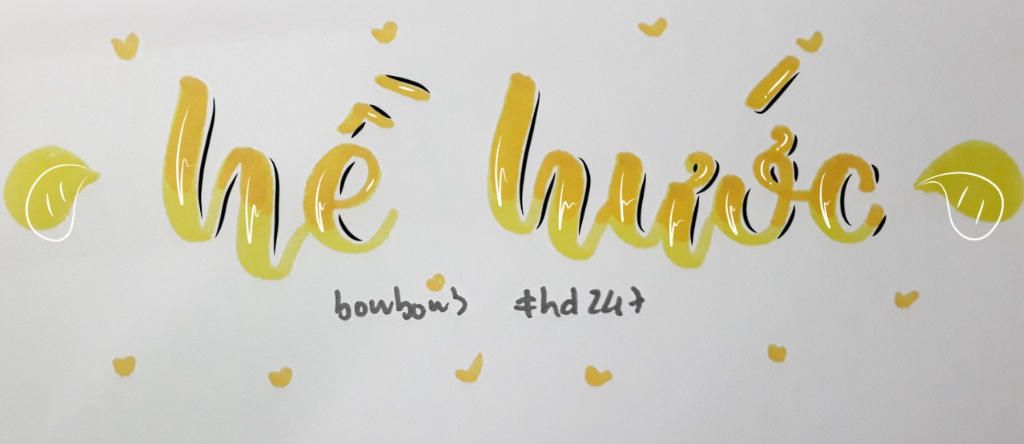 hề hước
bowbow3 #hd247